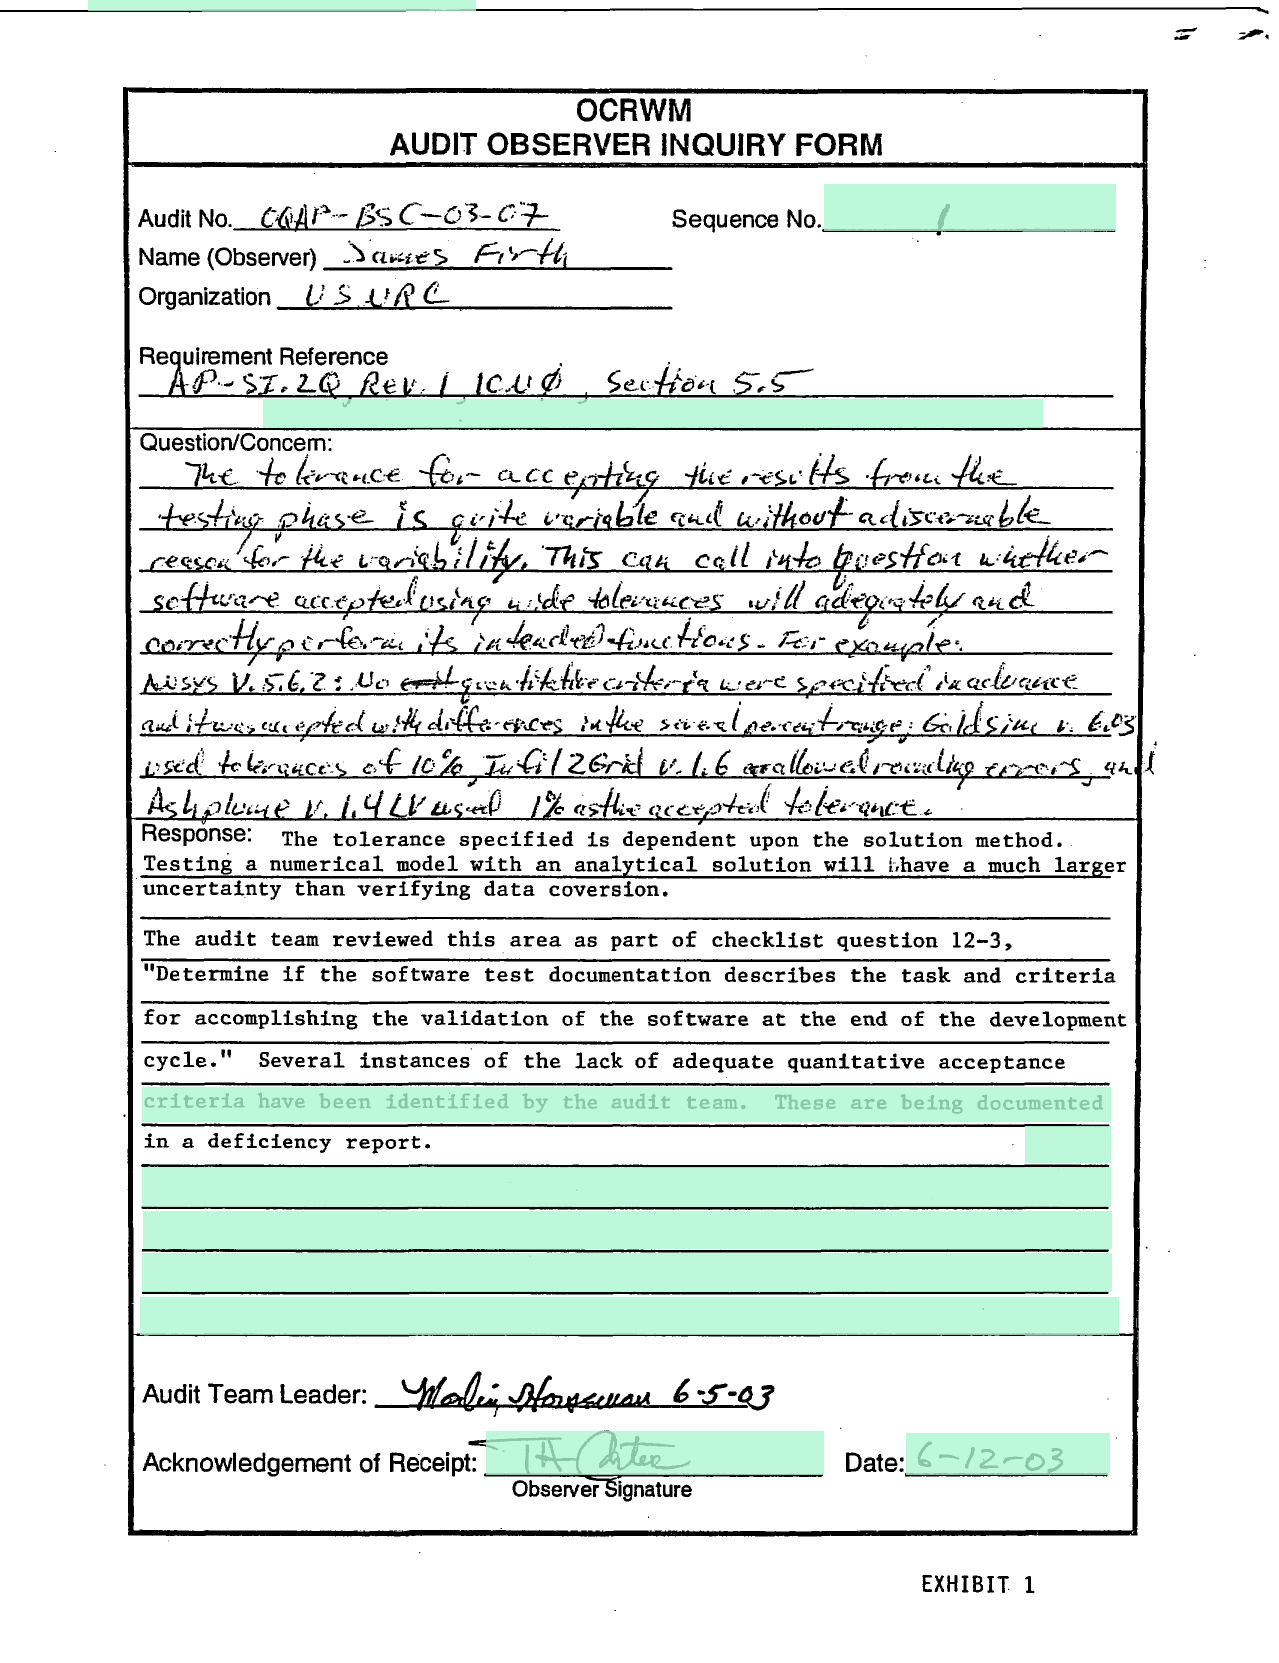 OCRWM
AUDIT OBSERVER INQUIRY FORM
Audit No. OQAP-BSC-03-07 Sequence No. 1
Name (Observer) James Firth
Organization USNRC
Requirement Reference
AP-SI.2Q Rev. 1 ICN Ø, Section 5.5
Question/Concern:
The tolerance for accepting the results from the
testing phase is quite variable and without a discernable
reason for the variability. This can call into question whether
software accepted using wide tolerances will adequately and
correctly perform its intended functions. For example:
ANSYS V.5.6.2: No quantitative criteria were specified in advance
and it was accepted with differences in the several percent range; Goldsim v. 6.03
used tolerances of 10%, Infil2Grid v. 1.6 allowed rounding errors, and
Ashplume v. 1.4 LV used 1% as the accepted tolerance.
Response: The tolerance specified is dependent upon the solution method.
Testing a numerical model with an analytical solution will have a much larger
uncertainty than verifying data coversion.
The audit team reviewed this area as part of checklist question 12-3,
"Determine if the software test documentation describes the task and criteria
for accomplishing the validation of the software at the end of the development
cycle." Several instances of the lack of adequate quanitative acceptance
criteria have been identified by the audit team. These are being documented
in a deficiency report.
Audit Team Leader: Marlin Horseman 6-5-03
Acknowledgement of Receipt: Date: 6-12-03
Observer Signature
EXHIBIT 1